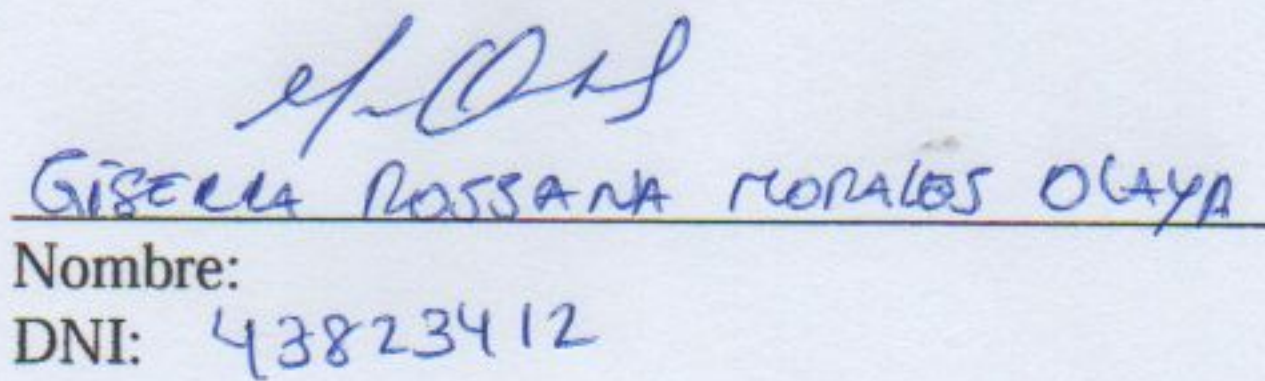 GISELLA ROSSANA MORALES OLAYA
Nombre:
DNI: 43823412